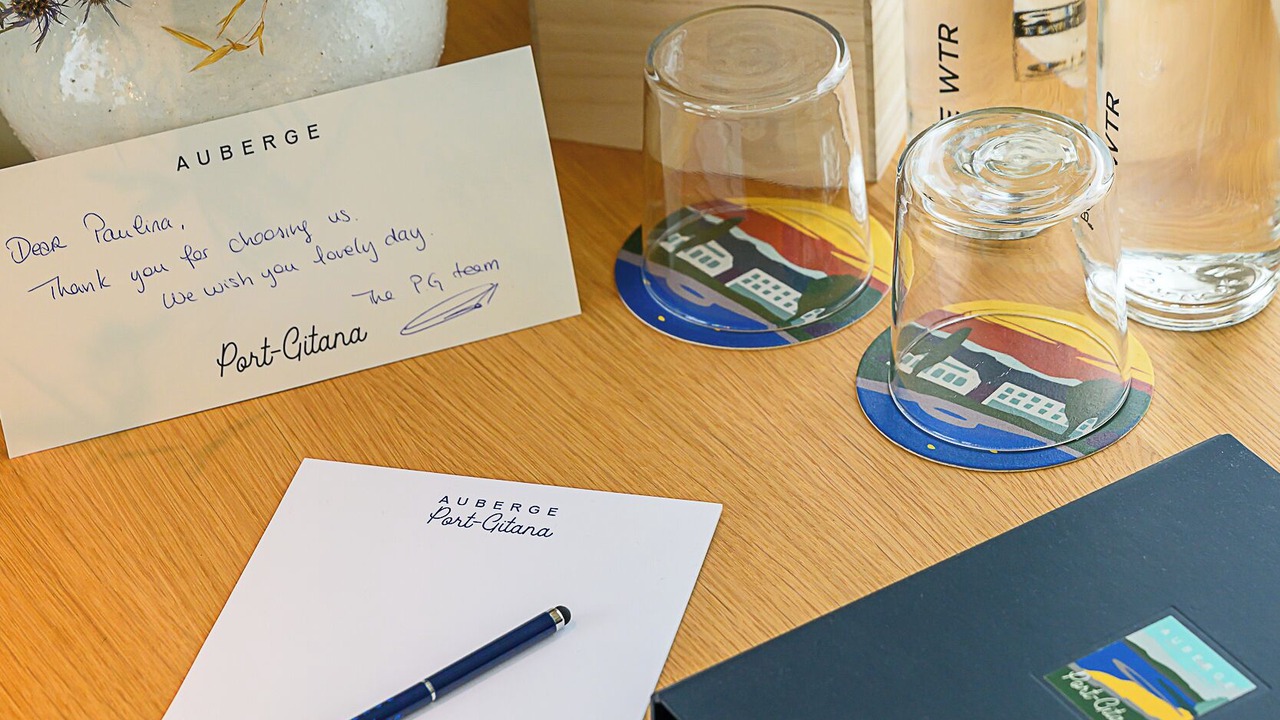 AUBERGE
Dear Paulina,
Thank you for choosing us.
We wish you lovely day.
The PG team
Port-Gitana
AUBERGE
Port-Gitana
WTR
WTR
AUBERGE